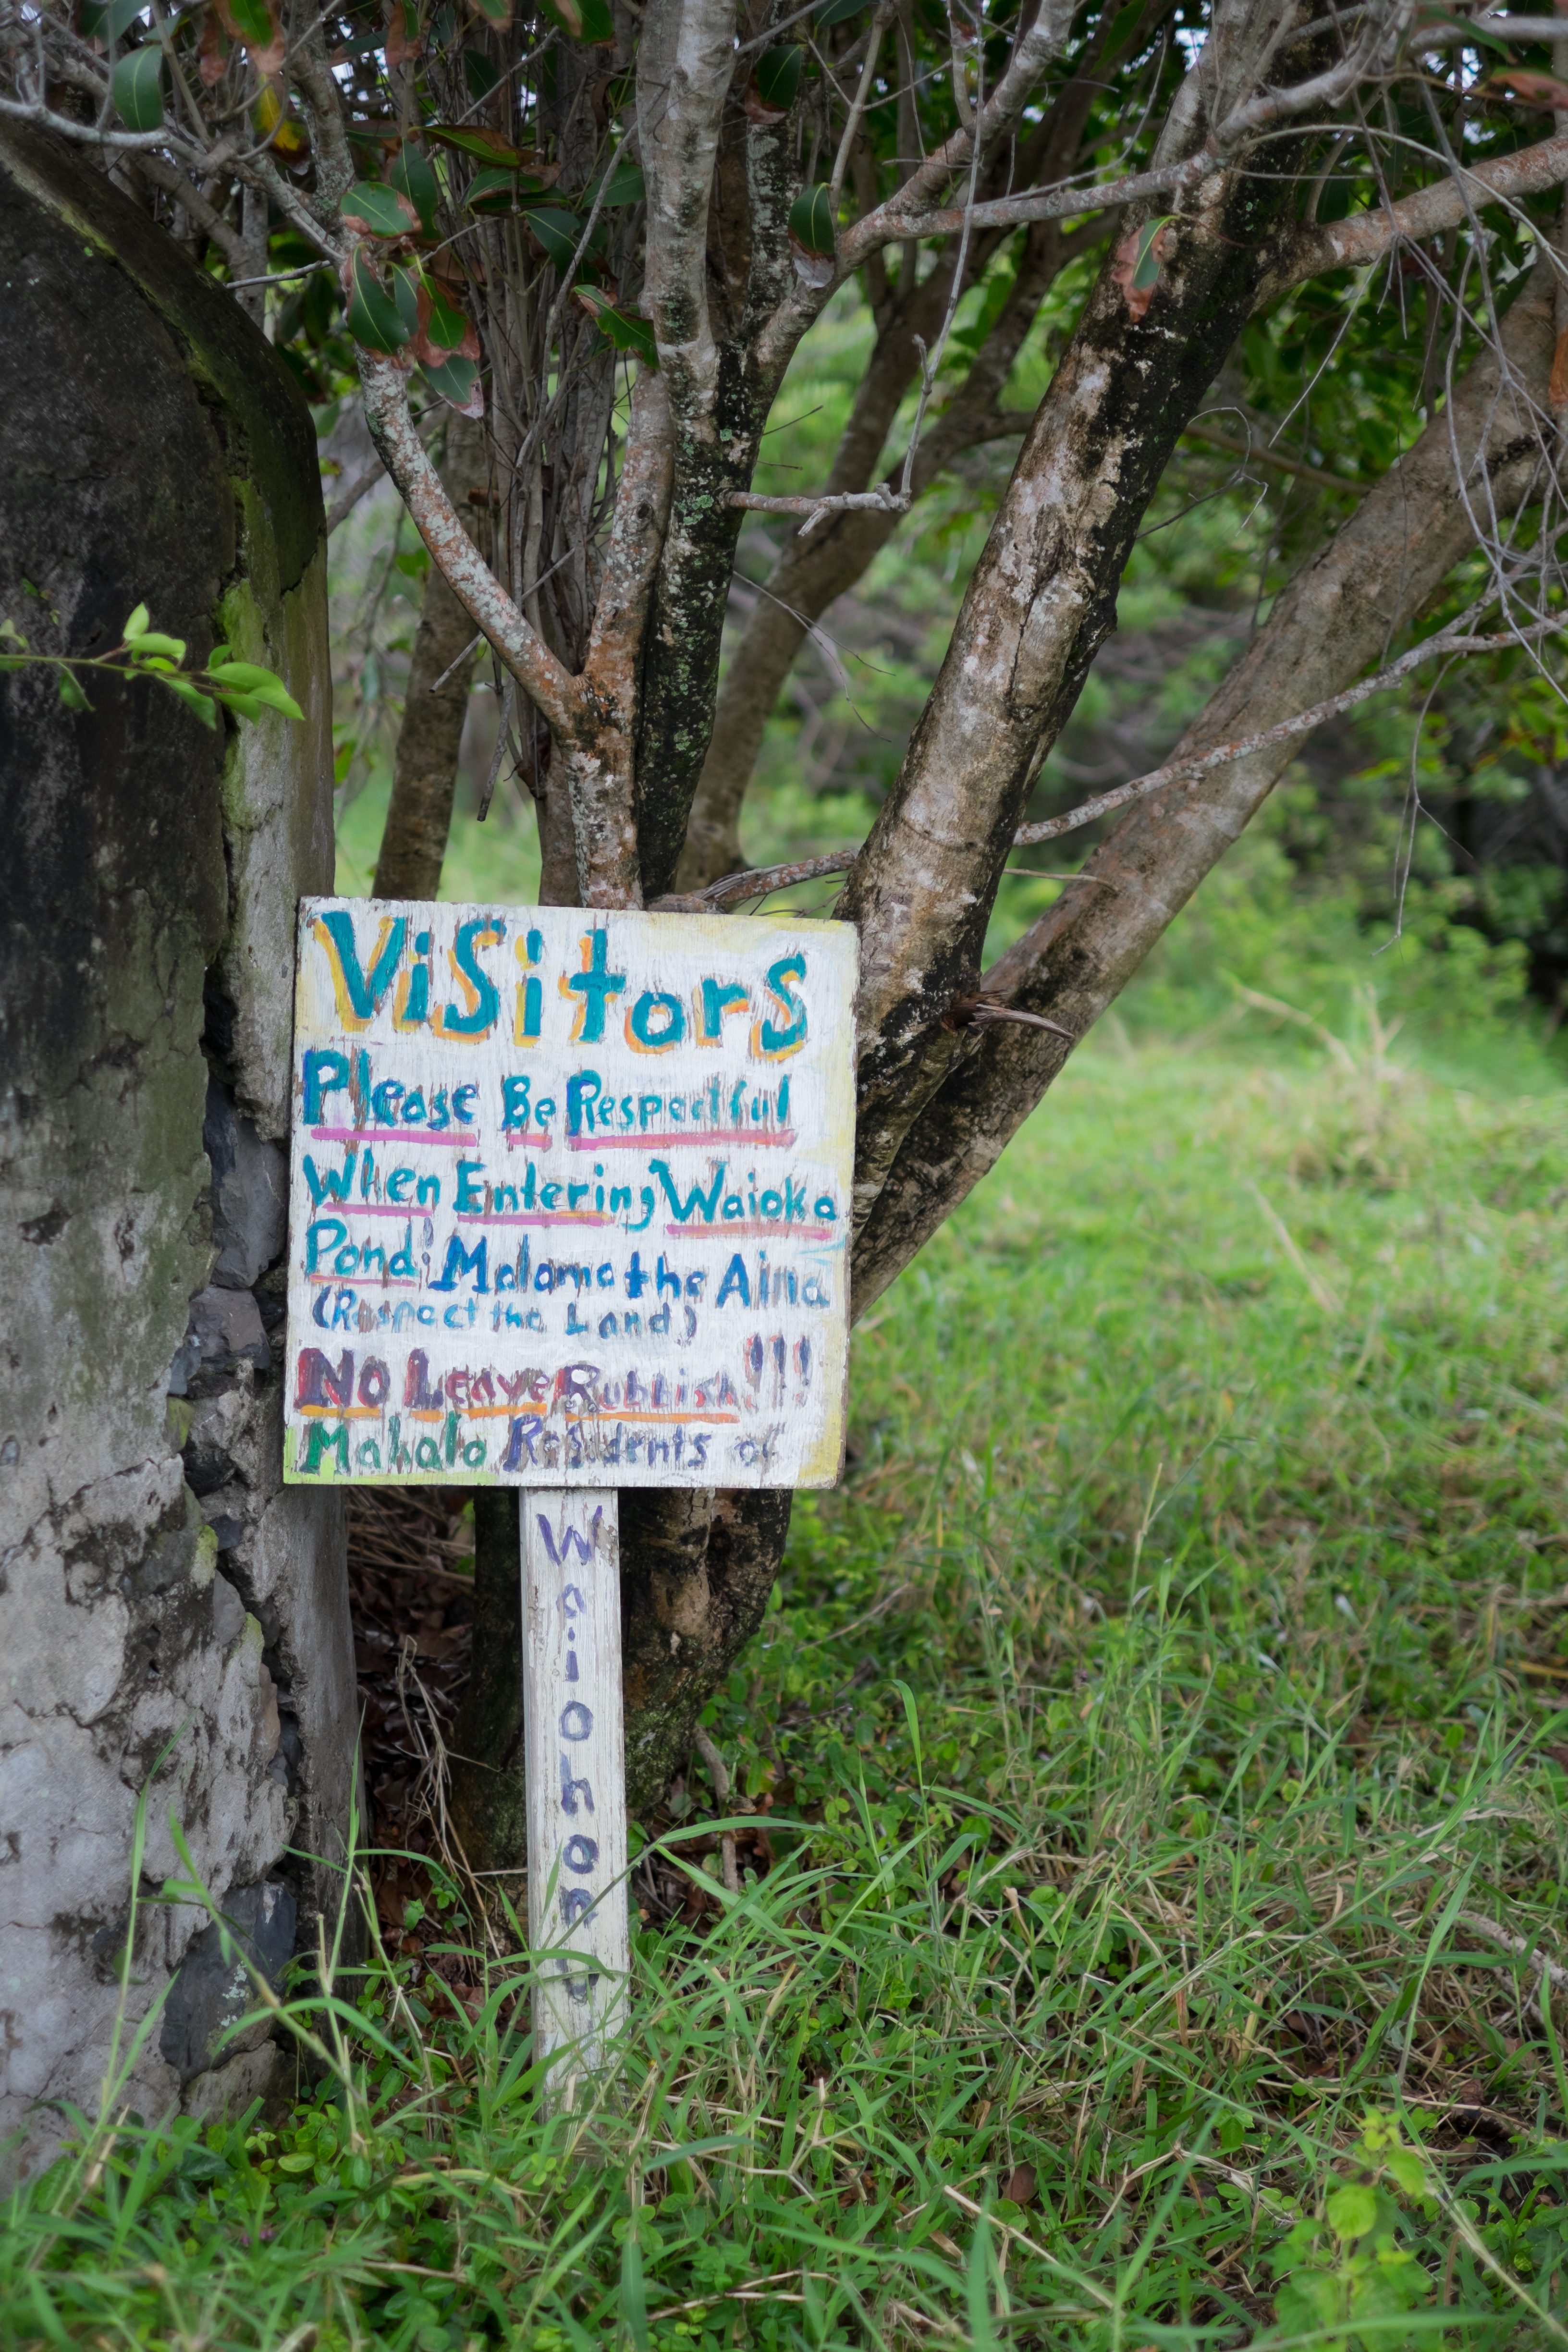 Visitors
Please Be Respectful
When Entering Waioka
Pond! Malama the Aina
(Respect the Land)
No Leave Rubbish!!!
Mahalo Residents of
Waiohonu